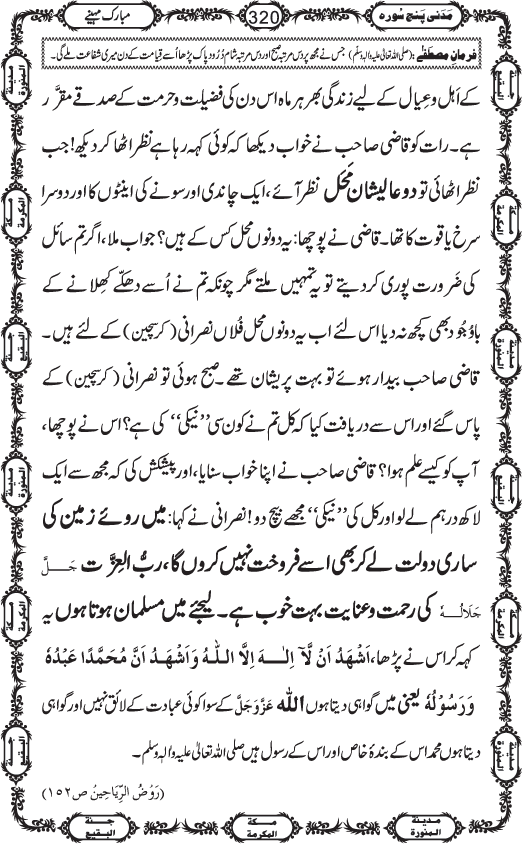 مَدَنی پنج سورہ
320
مبارک مہینے
فرمانِ مصطَفٰے: (صلی اللہ تعالیٰ علیہ والہٖ وسلم) جس نے مجھ پر دس مرتبہ صبح اور دس مرتبہ شام دُرُودِ پاک پڑھا اُسے قیامت کے دن میری شفاعت ملے گی۔
کے اَہل و عِیال کے لیے زندَگی بھر ہر ماہ اس دن کی فضیلت وحُرمت کے صدقے مقرَّر
ہے۔ رات کو قاضی صاحِب نے خواب دیکھا کہ کوئی کہہ رہا ہے نظر اٹھا کر دیکھ! جب
نظر اٹھائی تو دو عالیشان محَل نظر آئے، ایک چاندی اور سونے کی اینٹوں کا اور دوسرا
سرخ یا قوت کا تھا۔ قاضی نے پوچھا: یہ دونوں محل کس کے ہیں؟ جواب ملا، اگر تم سائل
کی ضَرورت پوری کر دیتے تو یہ تمہیں ملتے مگر چونکہ تم نے اُسے دھکّے کھلانے کے
باوُجود بھی کچھ نہ دیا اس لئے اب یہ دونوں محل فُلاں نصرانی (کرسچین) کے لئے ہیں۔
قاضی صاحِب بیدار ہوئے تو بہت پریشان تھے۔ صبح ہوئی تو نصرانی (کرسچین) کے
پاس گئے اور اس سے دریافت کیا کہ کل تم نے کون سی ’’نیکی‘‘ کی ہے؟ اس نے پوچھا،
آپ کو کیسے علم ہوا؟ قاضی صاحِب نے اپنا خواب سنایا، اور پیشکش کی کہ مجھ سے ایک
لاکھ درہم لے لو اور کل کی ’’نیکی‘‘ مجھے بیچ دو! نصرانی نے کہا: میں روئے زمین کی
ساری دولت لے کر بھی اسے فروخت نہیں کروں گا، ربُّ العِزَّت جَلَّ
جَلَالُہٗ کی رحمت وعنایت بہت خوب ہے۔ لیجئے میں مسلمان ہوتا ہوں یہ
کہہ کر اس نے پڑھا، اَشْهَدُ اَنْ لَّآ اِلٰـهَ اِلَّا اللّٰهُ وَاَشْهَدُ اَنَّ مُحَمَّدًا عَبْدُهٗ
وَرَسُوْلُهٗ یعنی میں گواہی دیتا ہوں اللہ عَزَّوَجَلَّ کے سوا کوئی عبادت کے لائق نہیں اور گواہی
دیتا ہوں محمد اس کے بندۂ خاص اور اس کے رسول ہیں صلی اللہ تعالیٰ علیہ والہٖ وسلم۔
(رَوْضُ الرِّيَاحِيْن ص١٥٢)
جنۃ البقیع
مکۃ المکرمۃ
مدینۃ المنورۃ